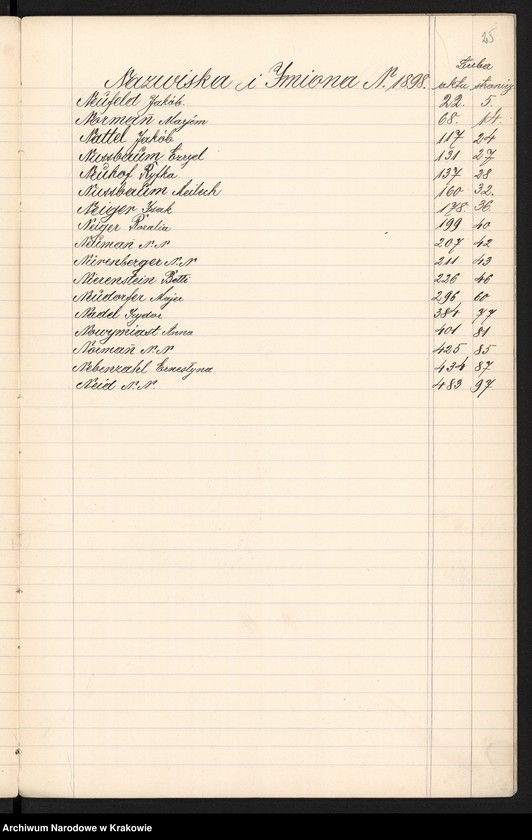 25
Liczba
Nazwiska i Imiona N. 1898. aktu stronicy
Neufeld Jakób. 22. 5.
Normann Marjem 68. 14.
Nattel Jakób 117 24
Nussbaum Ezryel 131 27
Neuhof Ryfka 137 28
Nussbaum Meilech 160 32.
Neiger Izak 178. 36.
Neiger Rozalia 199 40
Neuman N.N 207 42
Nürenberger N.N 211 43
Nierenstein Betti 226 46
Neudorfer Majer 296 60
Nadel Izydor 384 77
Nowymiast Anna 401 81
Normann N.N 425 85
Nebenzahl Ernestyna 434 87
Neid N.N. 483 97
Archiwum Narodowe w Krakowie